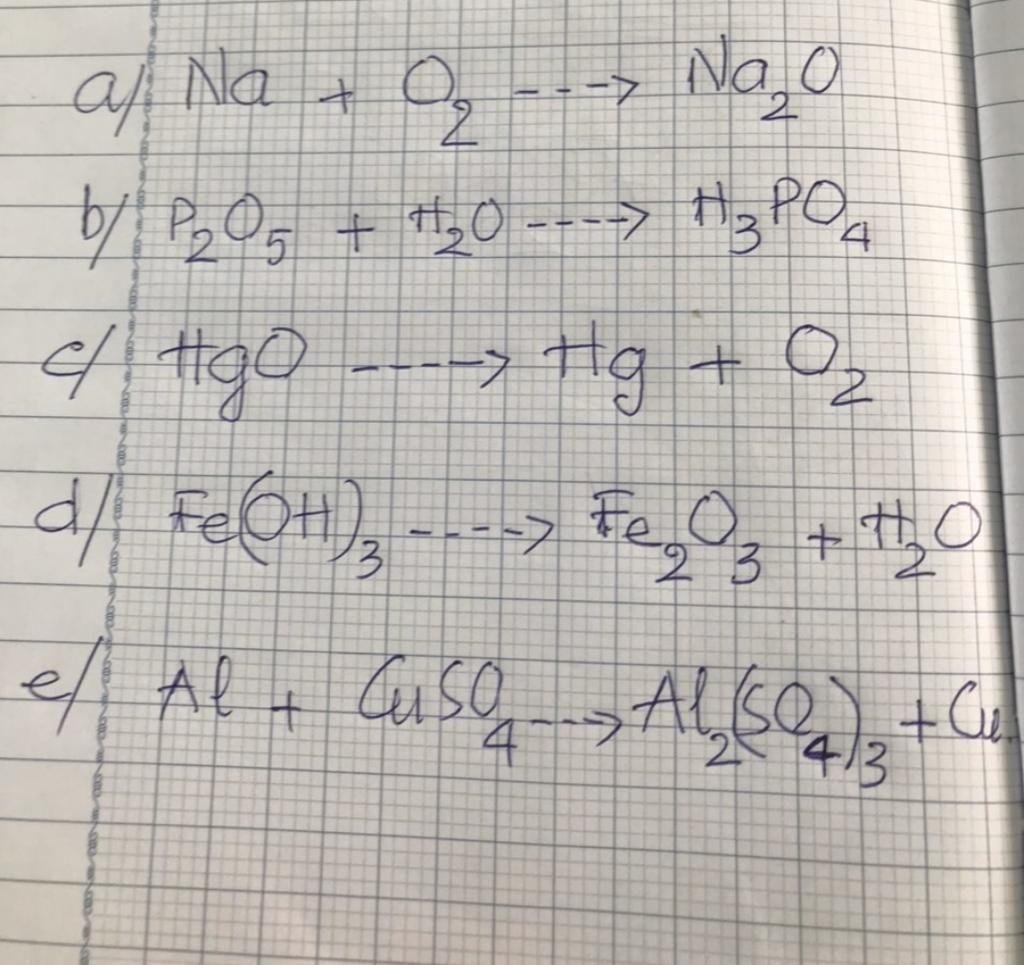 a/ Na + O₂ ---> Na₂O
b/ P₂O₅ + H₂O ----> H₃PO₄
c/ HgO ----> Hg + O₂
d/ Fe(OH)₃ ----> Fe₂O₃ + H₂O
e/ Al + CuSO₄ ---> Al₂(SO₄)₃ + Cu.